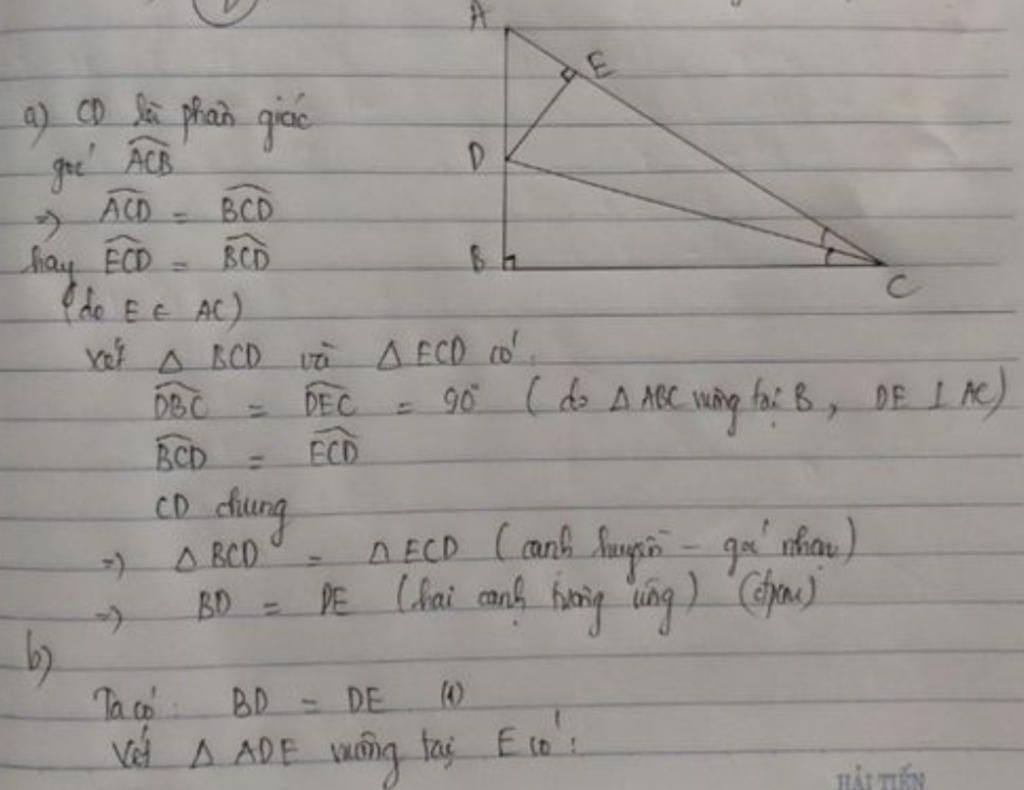 a) CD là phân giác
góc ACB
=> ACD = BCD
hay ECD = BCD
(do E ∈ AC)
Xét Δ BCD và Δ ECD có:
DBC = DEC = 90° (do Δ ABC vuông tại B, DE ⊥ AC)
BCD = ECD
CD chung
=> Δ BCD = Δ ECD (cạnh huyền - góc nhọn)
=> BD = DE (hai cạnh tương ứng) (đpcm)
b)
Ta có: BD = DE (1)
Xét Δ ADE vuông tại E có:
A
E
D
B
C
HẢI TIẾN